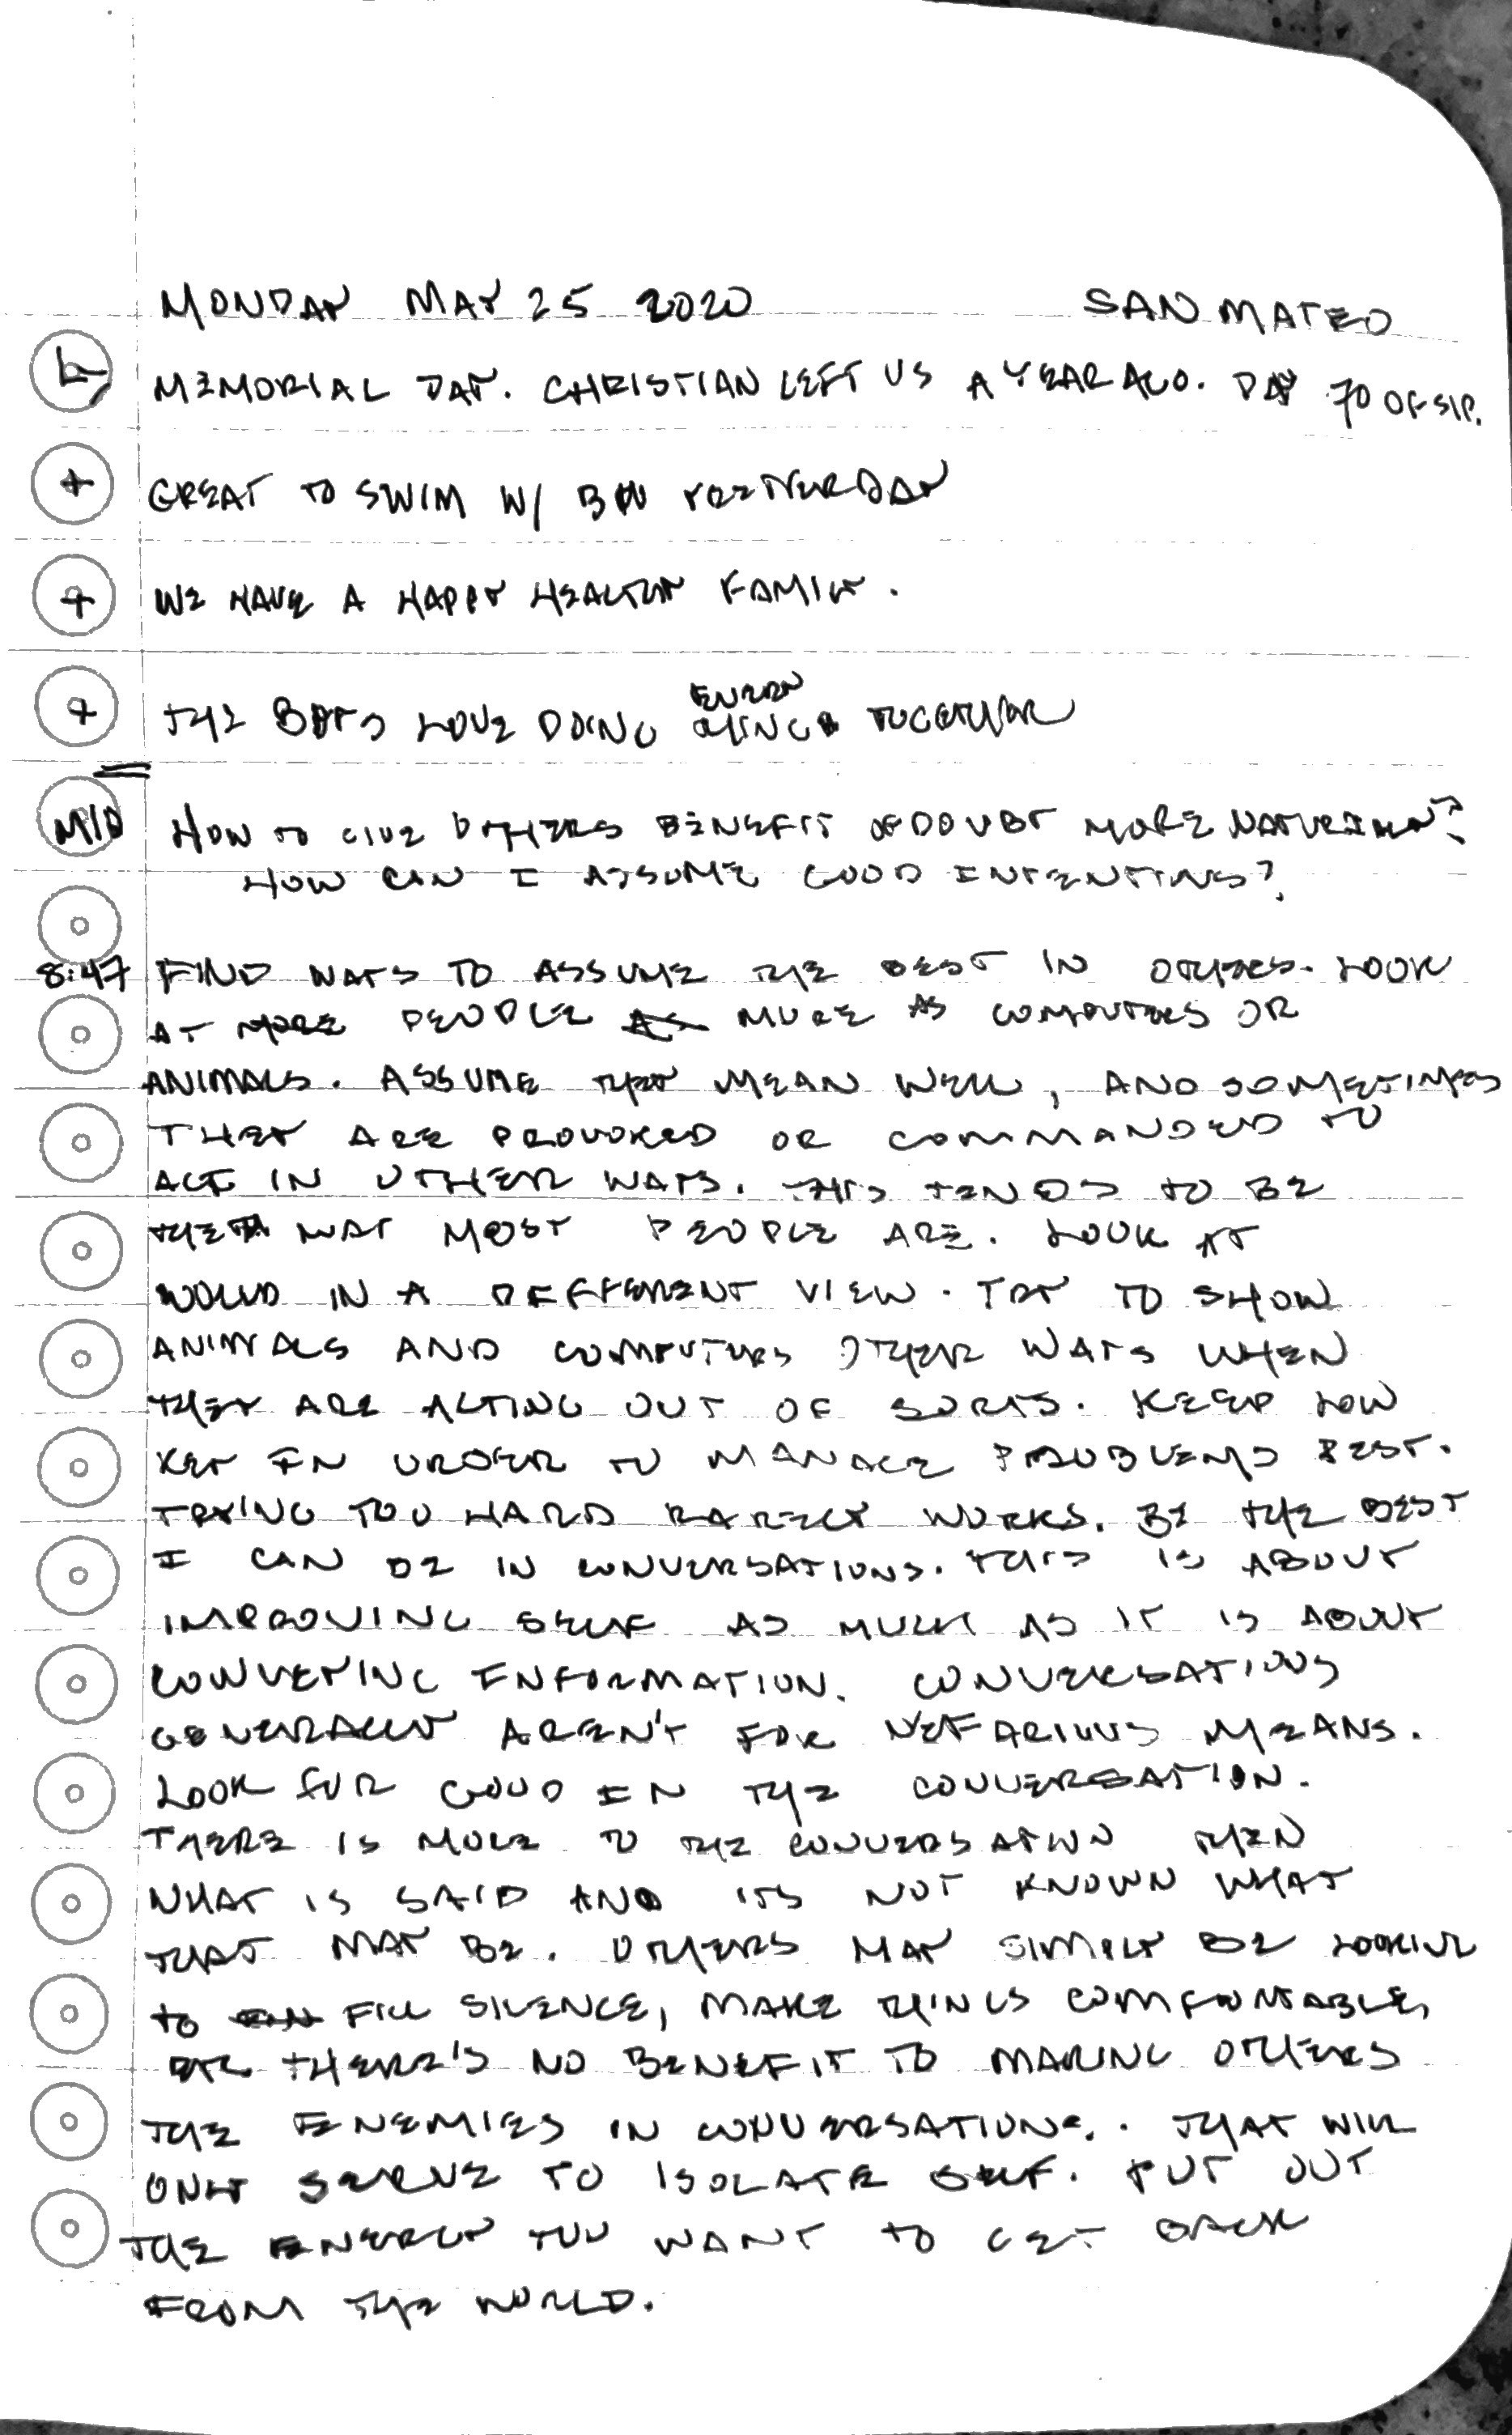 MONDAY MAY 25 2020 SAN MATEO
MEMORIAL DAY. CHRISTIAN LEFT US A YEAR AGO. DAY 70 OF SIP.
+ GREAT TO SWIM W/ YESTERDAY
+ WE HAVE A HAPPY HEALTHY FAMILY.
+ THE BOYS LOVE DOING THINGS TOGETHER
MID HOW TO GIVE OTHERS BENEFIT OF DOUBT MORE NATURALLY?
HOW CAN I ASSUME GOOD INTENTIONS?
8:47 FIND WAYS TO ASSUME THE BEST IN OTHERS. LOOK
AT MORE PEOPLE AS MORE AS COMPUTERS OR
ANIMALS. ASSUME THEY MEAN WELL, AND SOMETIMES
THEY ARE PROVOKED OR COMMANDED TO
ACT IN OTHER WAYS. THIS TENDS TO BE
THE WAY MOST PEOPLE ARE. LOOK AT
WORLD IN A DIFFERENT VIEW. TRY TO SHOW
ANIMALS AND COMPUTERS OTHER WAYS WHEN
THEY ARE ACTING OUT OF SORTS. KEEP LOW
KEY IN ORDER TO MANAGE PROBLEMS BEST.
TRYING TOO HARD RARELY WORKS. BE THE BEST
I CAN BE IN CONVERSATIONS. THIS IS ABOUT
IMPROVING SELF AS MUCH AS IT IS ABOUT
CONVEYING INFORMATION. CONVERSATIONS
GENERALLY AREN'T FOR NEFARIOUS MEANS.
LOOK FOR GOOD IN THE CONVERSATION.
THERE IS MORE TO THE CONVERSATION THEN
WHAT IS SAID AND ITS NOT KNOWN WHAT
THAT MAY BE. OTHERS MAY SIMPLY BE LOOKING
TO FILL SILENCE, MAKE THINGS COMFORTABLE,
ETC THERE'S NO BENEFIT TO MAKING OTHERS
THE ENEMIES IN CONVERSATIONS. THAT WILL
ONLY SERVE TO ISOLATE SELF. PUT OUT
THE ENERGY YOU WANT TO GET BACK
FROM THE WORLD.